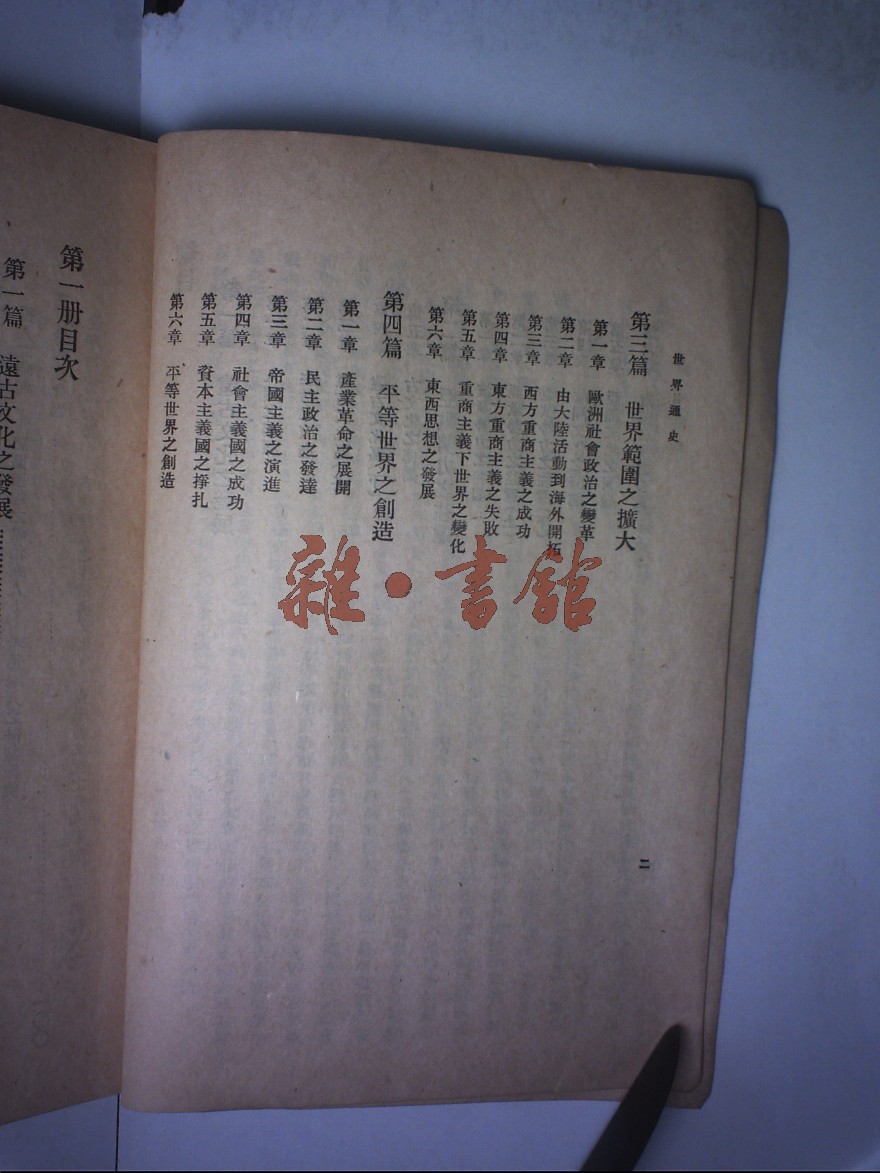 世界通史
第三篇 世界範圍之擴大
第一章 歐洲社會政治之變革
第二章 由大陸活動到海外開拓
第三章 西方重商主義之成功
第四章 東方重商主義之失敗
第五章 重商主義下世界之變化
第六章 東西思想之發展
第四篇 平等世界之創造
第一章 產業革命之展開
第二章 民主政治之發達
第三章 帝國主義之演進
第四章 社會主義國之成功
第五章 資本主義國之掙扎
第六章 平等世界之創造
二
第一册目次
第一篇 遠古文化之發展
雜·書館